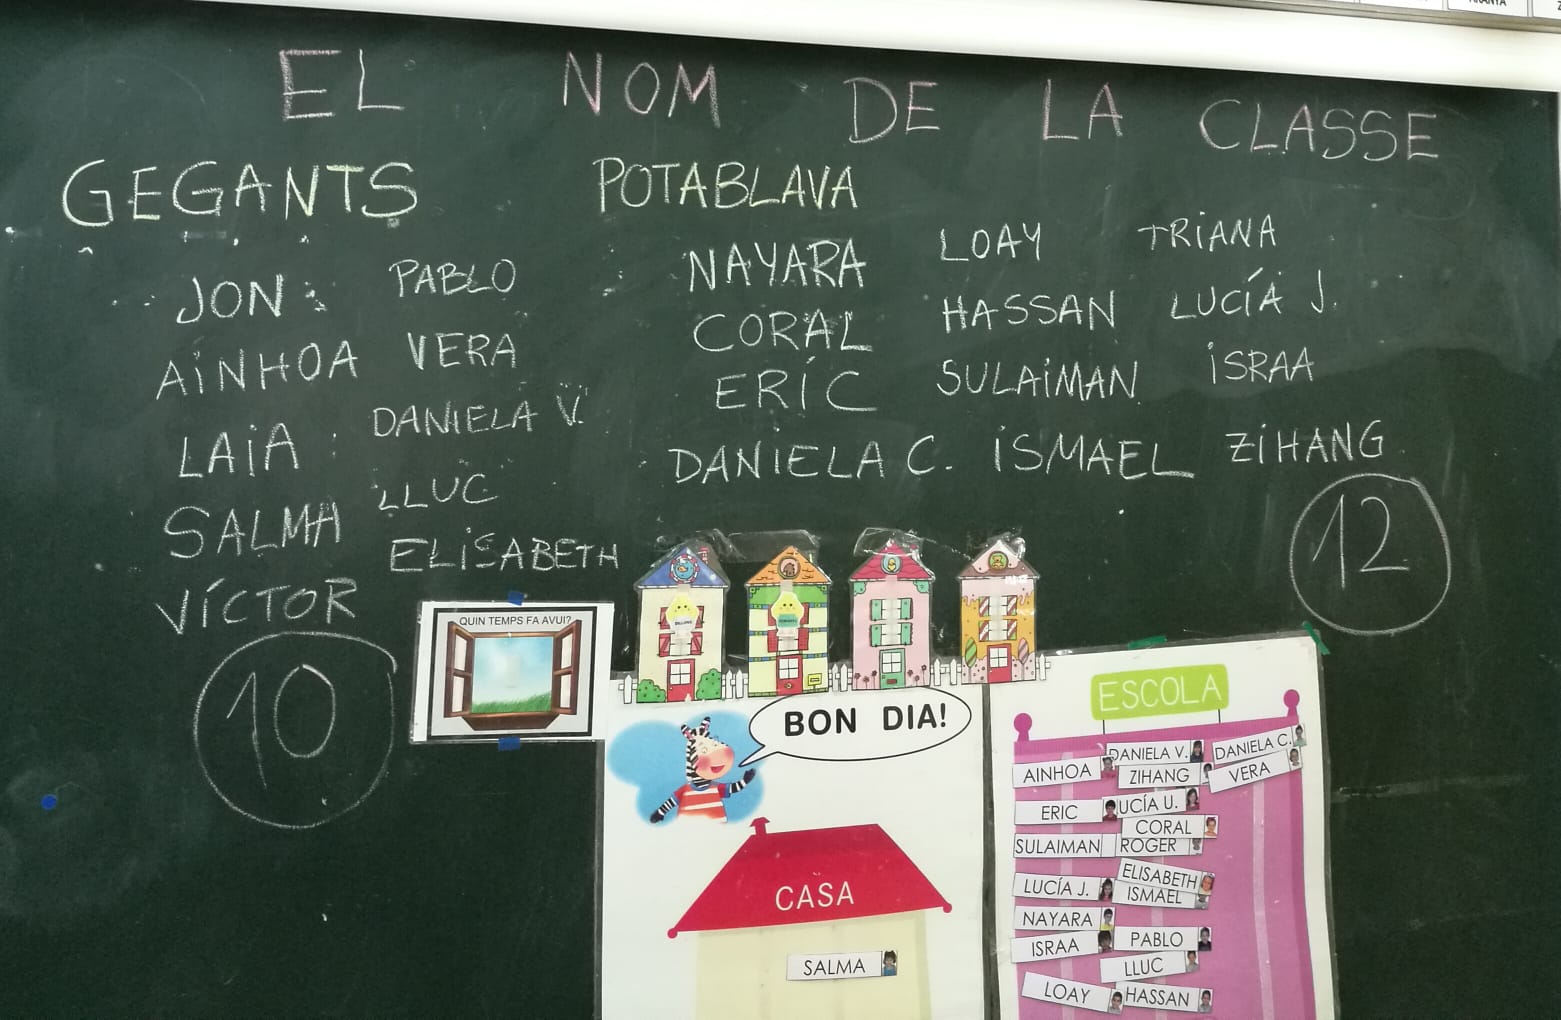 EL NOM DE LA CLASSE
GEGANTS
JON PABLO
AiNHOA VERA
LAiA DANIELA V.
SALMA LLUC
VÍCTOR ELiSABETH
10
POTABLAVA
NAYARA LOAY TRiANA
CORAL HASSAN LUCÍA J.
ERIC SULAiMAN iSRAA
DANiELA C. iSMAEL ZiHANG
12
QUIN TEMPS FA AVUI?
BON DIA!
CASA
SALMA
ESCOLA
DANIELA V. DANIELA C.
AINHOA ZIHANG VERA
ERIC UCÍA U.
CORAL
SULAIMAN ROGER
ELISABETH
LUCÍA J. ISMAEL
NAYARA
ISRAA PABLO
LLUC
LOAY HASSAN